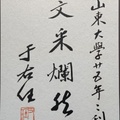 山東大學廿五年年刊
文采爛然
于右任